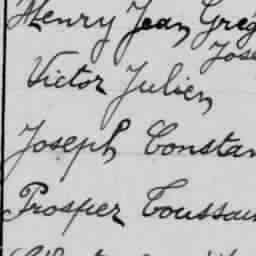 Henry Jean Grég
José
Victor Julien
Joseph Constan
Prosper Toussain